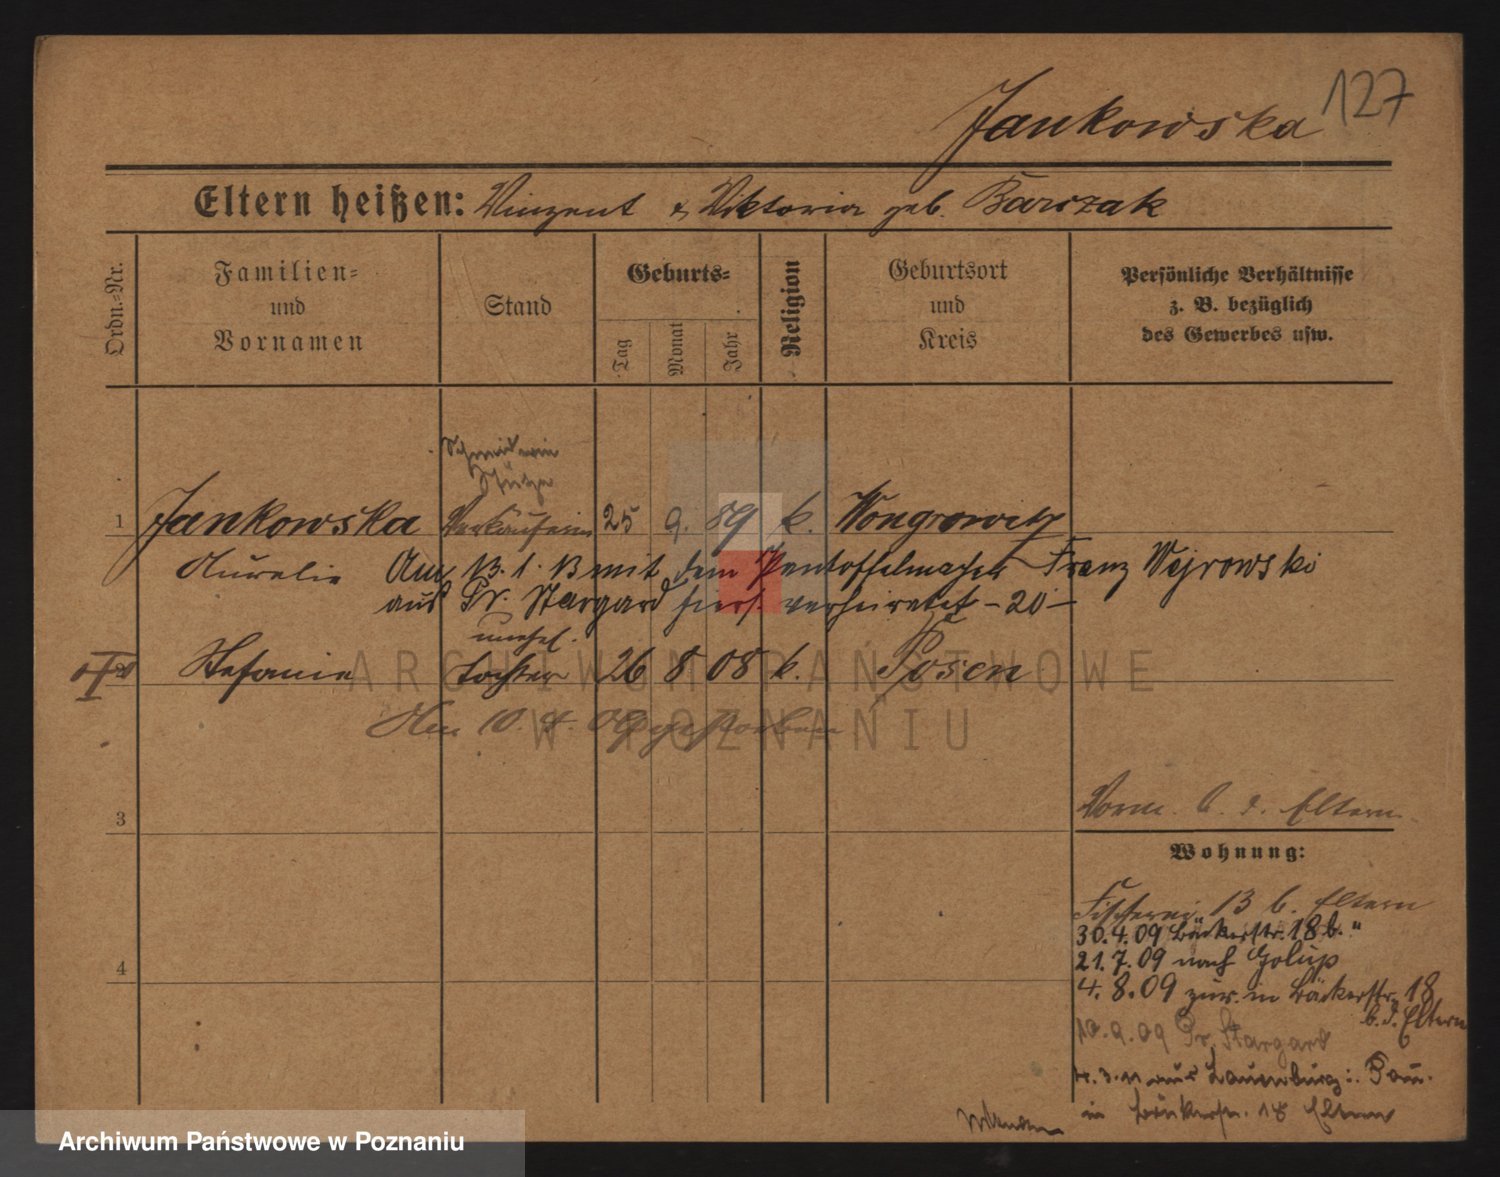 127
Jankowska
Eltern heißen: Vinzent & Viktoria geb. Barczak
Ordn.=Nr.
Familien=
und
Vornamen
Stand
Geburts=
Tag
Monat
Jahr
Religion
Geburtsort
und
Kreis
Persönliche Verhältnisse
z. B. bezüglich
des Gewerbes usw.
Schneiderin
Stütze
1 Jankowska Verkäuferin 25 9. 89 k. Wongrowitz
Aurelie Am 13.1.13 mit dem Pantoffelmacher Franz Wejrowski
aus Pr. Stargard hiers. verheiratet - 20 -
unehel.
2 Stefanie Tochter 26 8 08 k. Posen
Am 10. 09 gestorben
3
Vorm. b. d. Eltern
Wohnung:
4
Fischerei 13 b. Eltern
30.4.09 Bäckerstr. 18 b. "
21.7.09 nach Golup
4.8.09 zur. in Bäckerstr. 18
b. d. Eltern
10.9.09 Pr. Stargard
4.3.11 aus Lauenburg i. Pom.
in Bäckerstr. 18 Eltern
ARCHIWUM PAŃSTWOWE
W POZNANIU
Archiwum Państwowe w Poznaniu